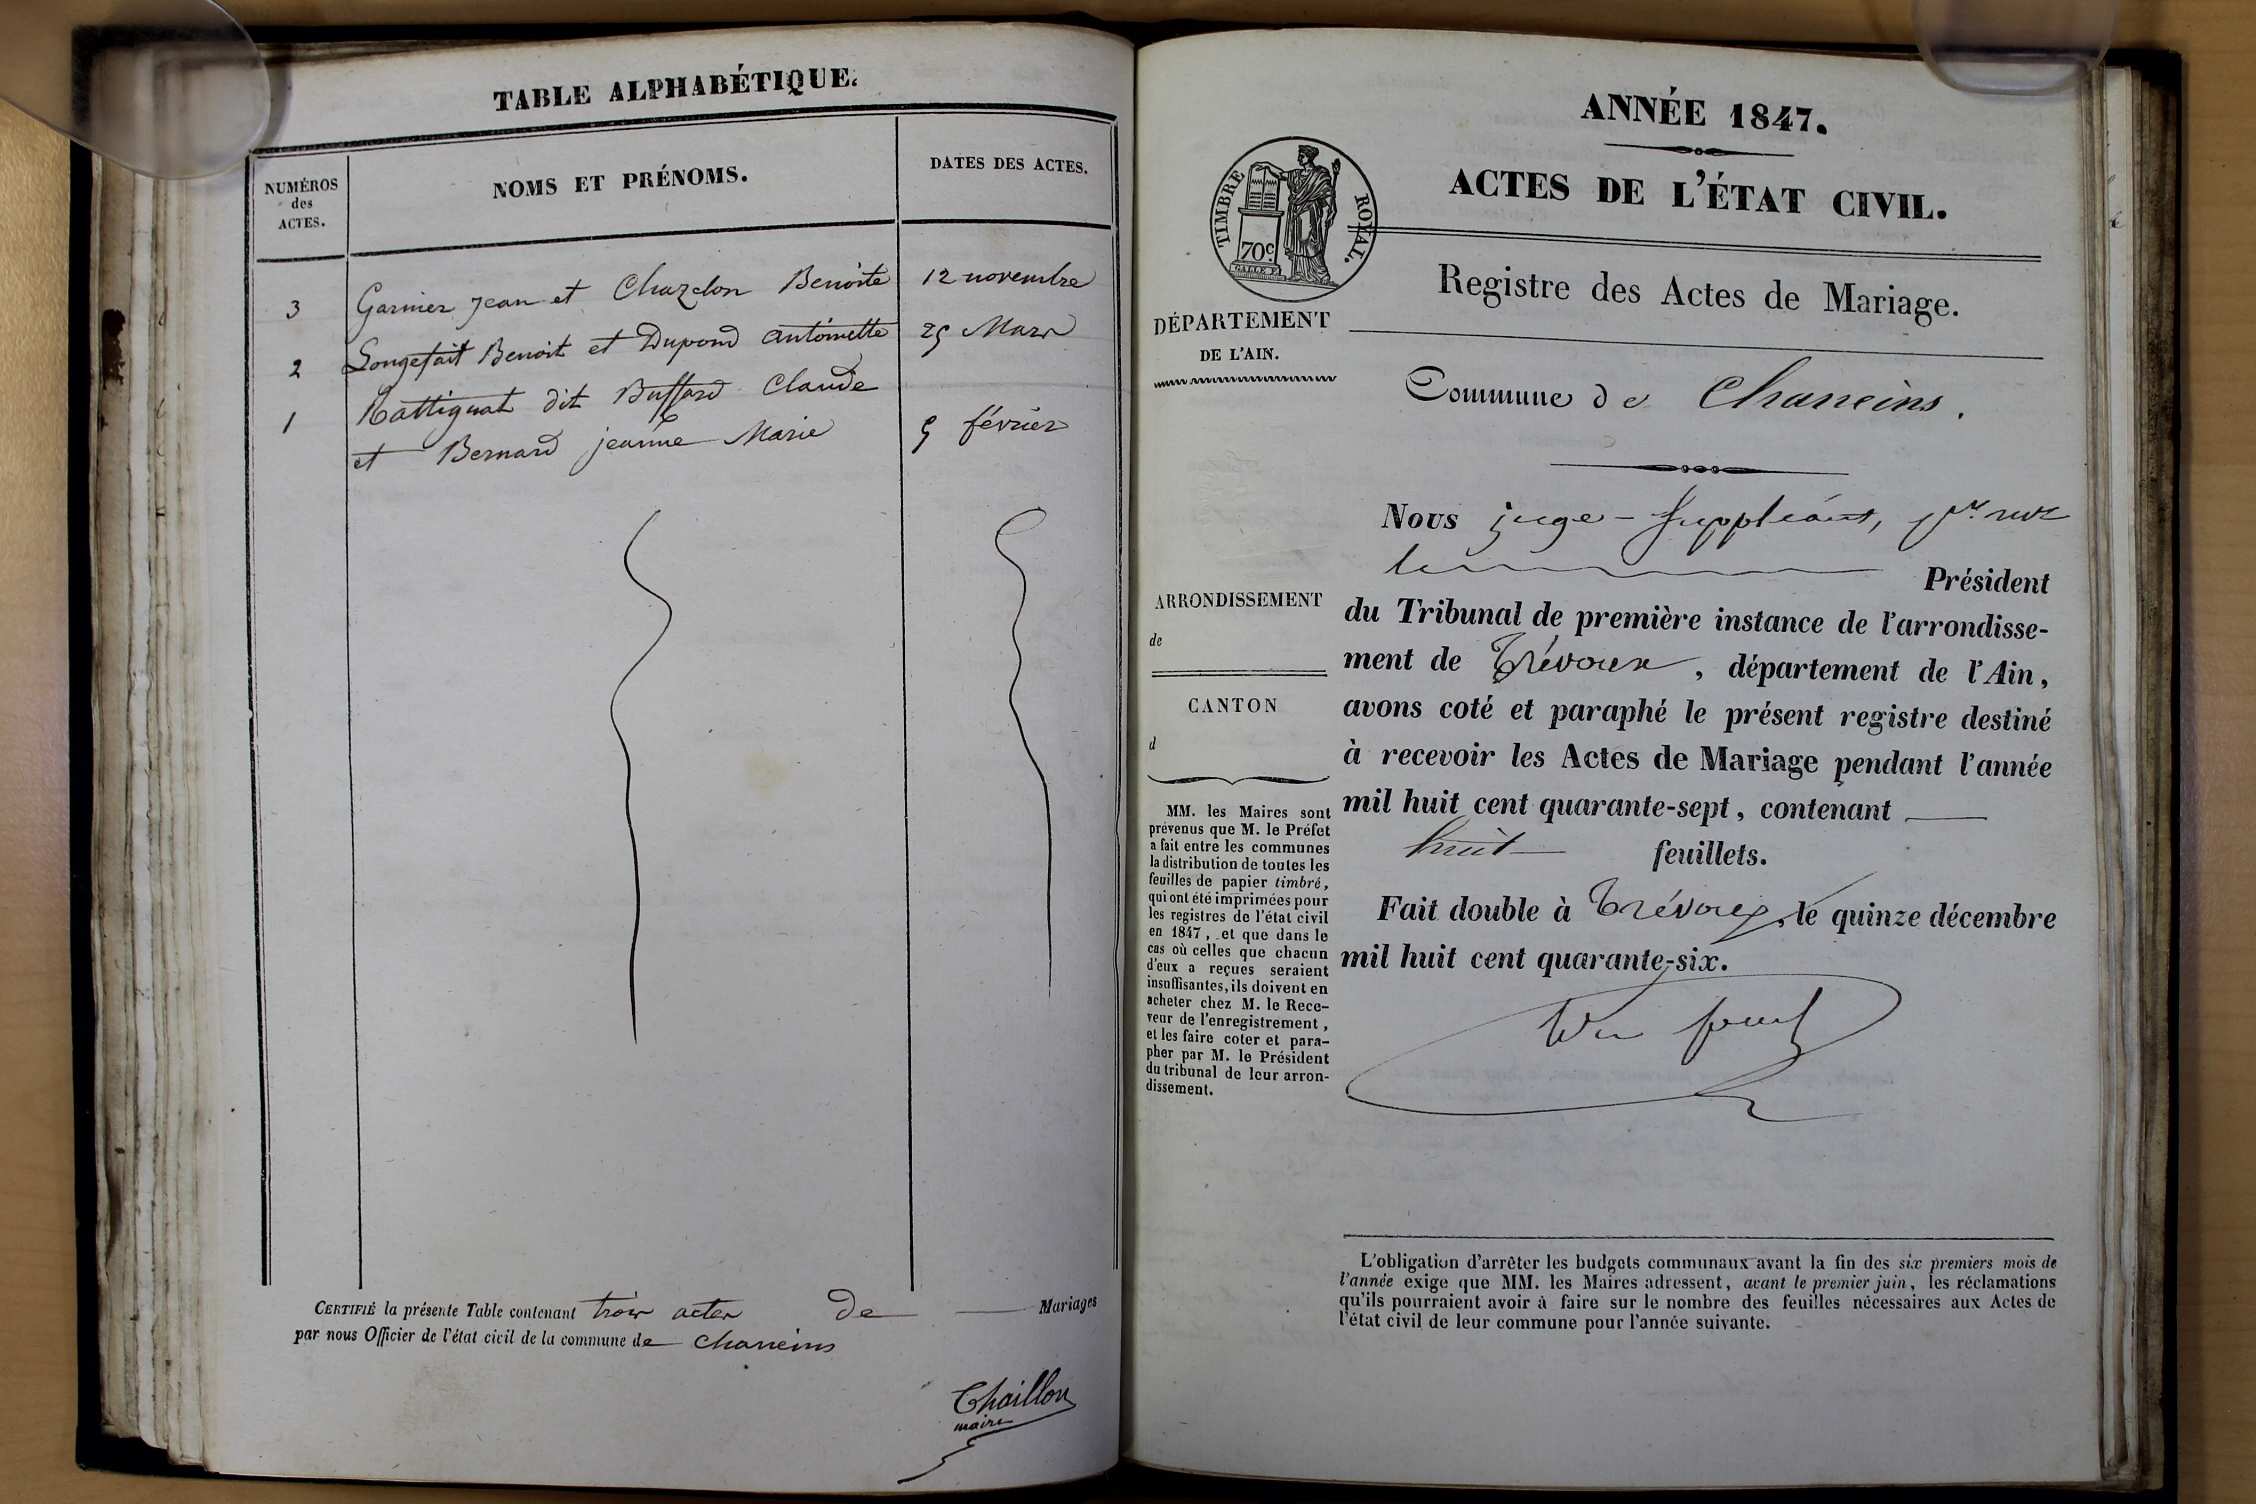 TABLE ALPHABÉTIQUE.
NUMÉROS
des
ACTES.
NOMS ET PRÉNOMS.
DATES DES ACTES.
3 Garnier Jean et Chazelon Benoite 12 novembre
2 Longefait Benoit et Dupond antoinette 25 Mars
1 Rattignat dit Buffard Claude
et Bernard jeanne Marie 5 février
CERTIFIÉ la présente Table contenant trois actes de Mariages
par nous Officier de l'état civil de la commune de chaneins
Chaillon
maire
ANNÉE 1847.
ACTES DE L'ÉTAT CIVIL.
TIMBRE ROYAL.
70c
Registre des Actes de Mariage.
DÉPARTEMENT
DE L'AIN.
Commune de Chaneins.
ARRONDISSEMENT
de
CANTON
d
MM. les Maires sont
prévenus que M. le Préfet
a fait entre les communes
la distribution de toutes les
feuilles de papier timbré,
qui ont été imprimées pour
les registres de l'état civil
en 1847, et que dans le
cas où celles que chacun
d'eux a reçues seraient
insuffisantes, ils doivent en
acheter chez M. le Rece-
veur de l'enregistrement,
et les faire coter et para-
pher par M. le Président
du tribunal de leur arron-
dissement.
Nous juge-suppléant, pr
le Président
du Tribunal de première instance de l'arrondisse-
ment de Trévoux, département de l'Ain,
avons coté et paraphé le présent registre destiné
à recevoir les Actes de Mariage pendant l'année
mil huit cent quarante-sept, contenant
huit feuillets.
Fait double à Trévoux, le quinze décembre
mil huit cent quarante-six.
L'obligation d'arrêter les budgets communaux avant la fin des six premiers mois de
l'année exige que MM. les Maires adressent, avant le premier juin, les réclamations
qu'ils pourraient avoir à faire sur le nombre des feuilles nécessaires aux Actes de
l'état civil de leur commune pour l'année suivante.